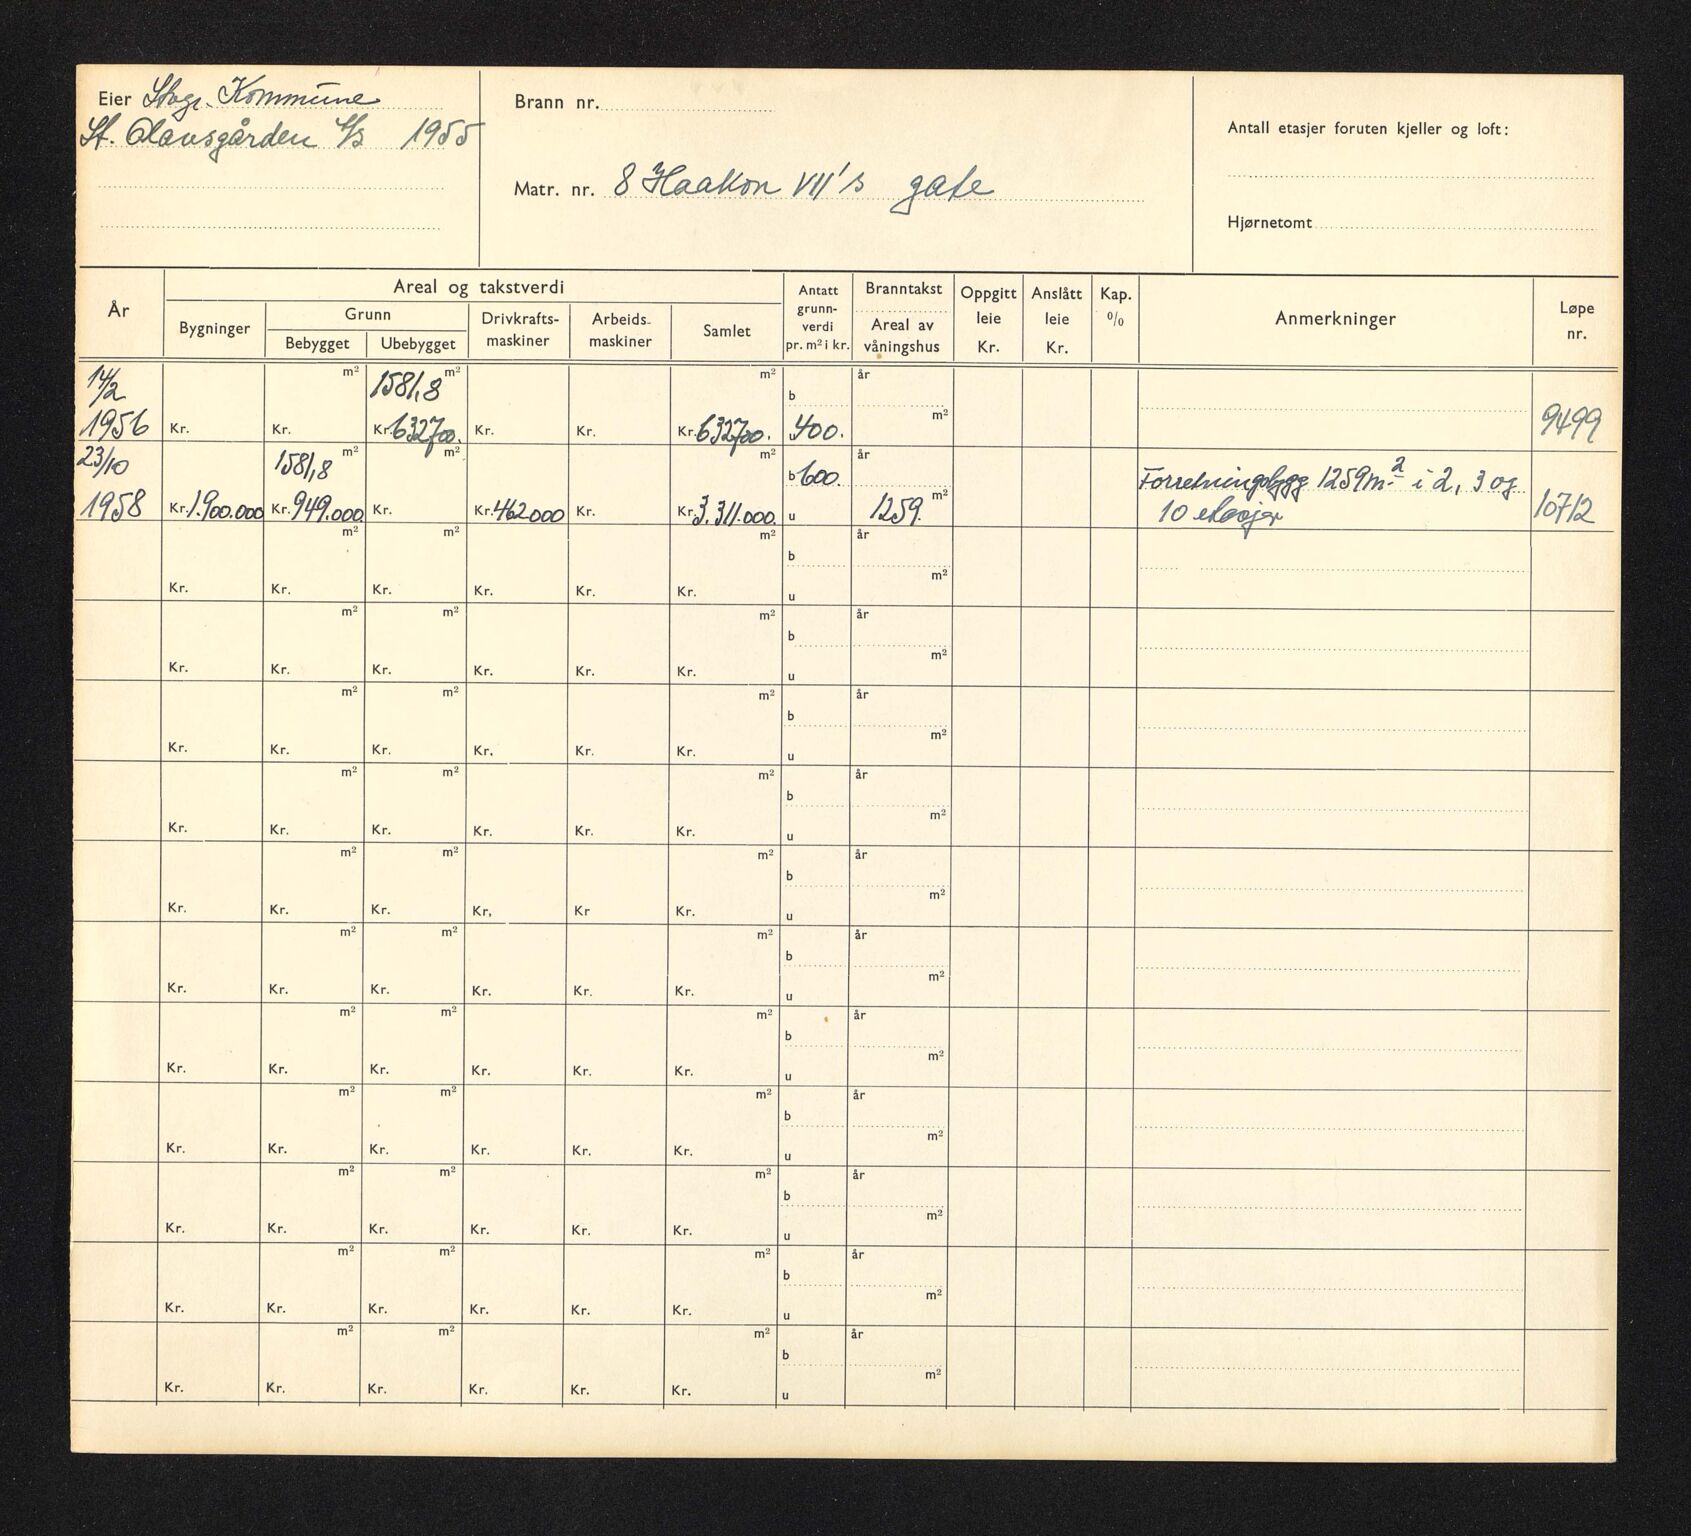 Eier Stvgr. Kommune
St. Olavsgården A/S 1955
Brann nr.
Matr. nr. 8 Haakon VII's gate
Antall etasjer foruten kjeller og loft:
Hjørnetomt
År
Areal og takstverdi
Bygninger
Grunn
Bebygget Ubebygget
Drivkrafts-
maskiner
Arbeids-
maskiner
Samlet
Antatt
grunn-
verdi
pr. m² i kr.
Branntakst
Areal av
våningshus
Oppgitt
leie
Kr.
Anslått
leie
Kr.
Kap.
%
Anmerkninger
Løpe
nr.
14/2 m² 1581,8 m² m² b år
1956 Kr. Kr. Kr. 632700. Kr. Kr. Kr. 632700. 400. m² 9499
23/10 1581,8 m² m² m² b 600 år Forretningsbygg 1259 m² i 2, 3 og
1958 Kr. 1.900.000 Kr. 949.000 Kr. Kr. 462000 Kr. Kr. 3.311.000. u 1259. m² 10 etasjer 10712
m² m² m² b år
Kr. Kr. Kr. Kr. Kr. Kr. u m²
m² m² m² b år
Kr. Kr. Kr. Kr. Kr. Kr. u m²
m² m² m² b år
Kr. Kr. Kr. Kr. Kr. Kr. u m²
m² m² m² b år
Kr. Kr. Kr. Kr. Kr. Kr. u m²
m² m² m² b år
Kr. Kr. Kr. Kr, Kr Kr. u m²
m² m² m² b år
Kr. Kr. Kr. Kr. Kr. Kr. u m²
m² m² m² b år
Kr. Kr. Kr. Kr. Kr. Kr. u m²
m² m² m² b år
Kr. Kr. Kr. Kr. Kr. Kr. u m²
m² m² m² b år
Kr. Kr. Kr. Kr. Kr. Kr. u m²
m² m² m² b år
Kr. Kr. Kr. Kr. Kr. Kr. u m²
m² m² m² b år
Kr. Kr. Kr. Kr. Kr. Kr. u m²